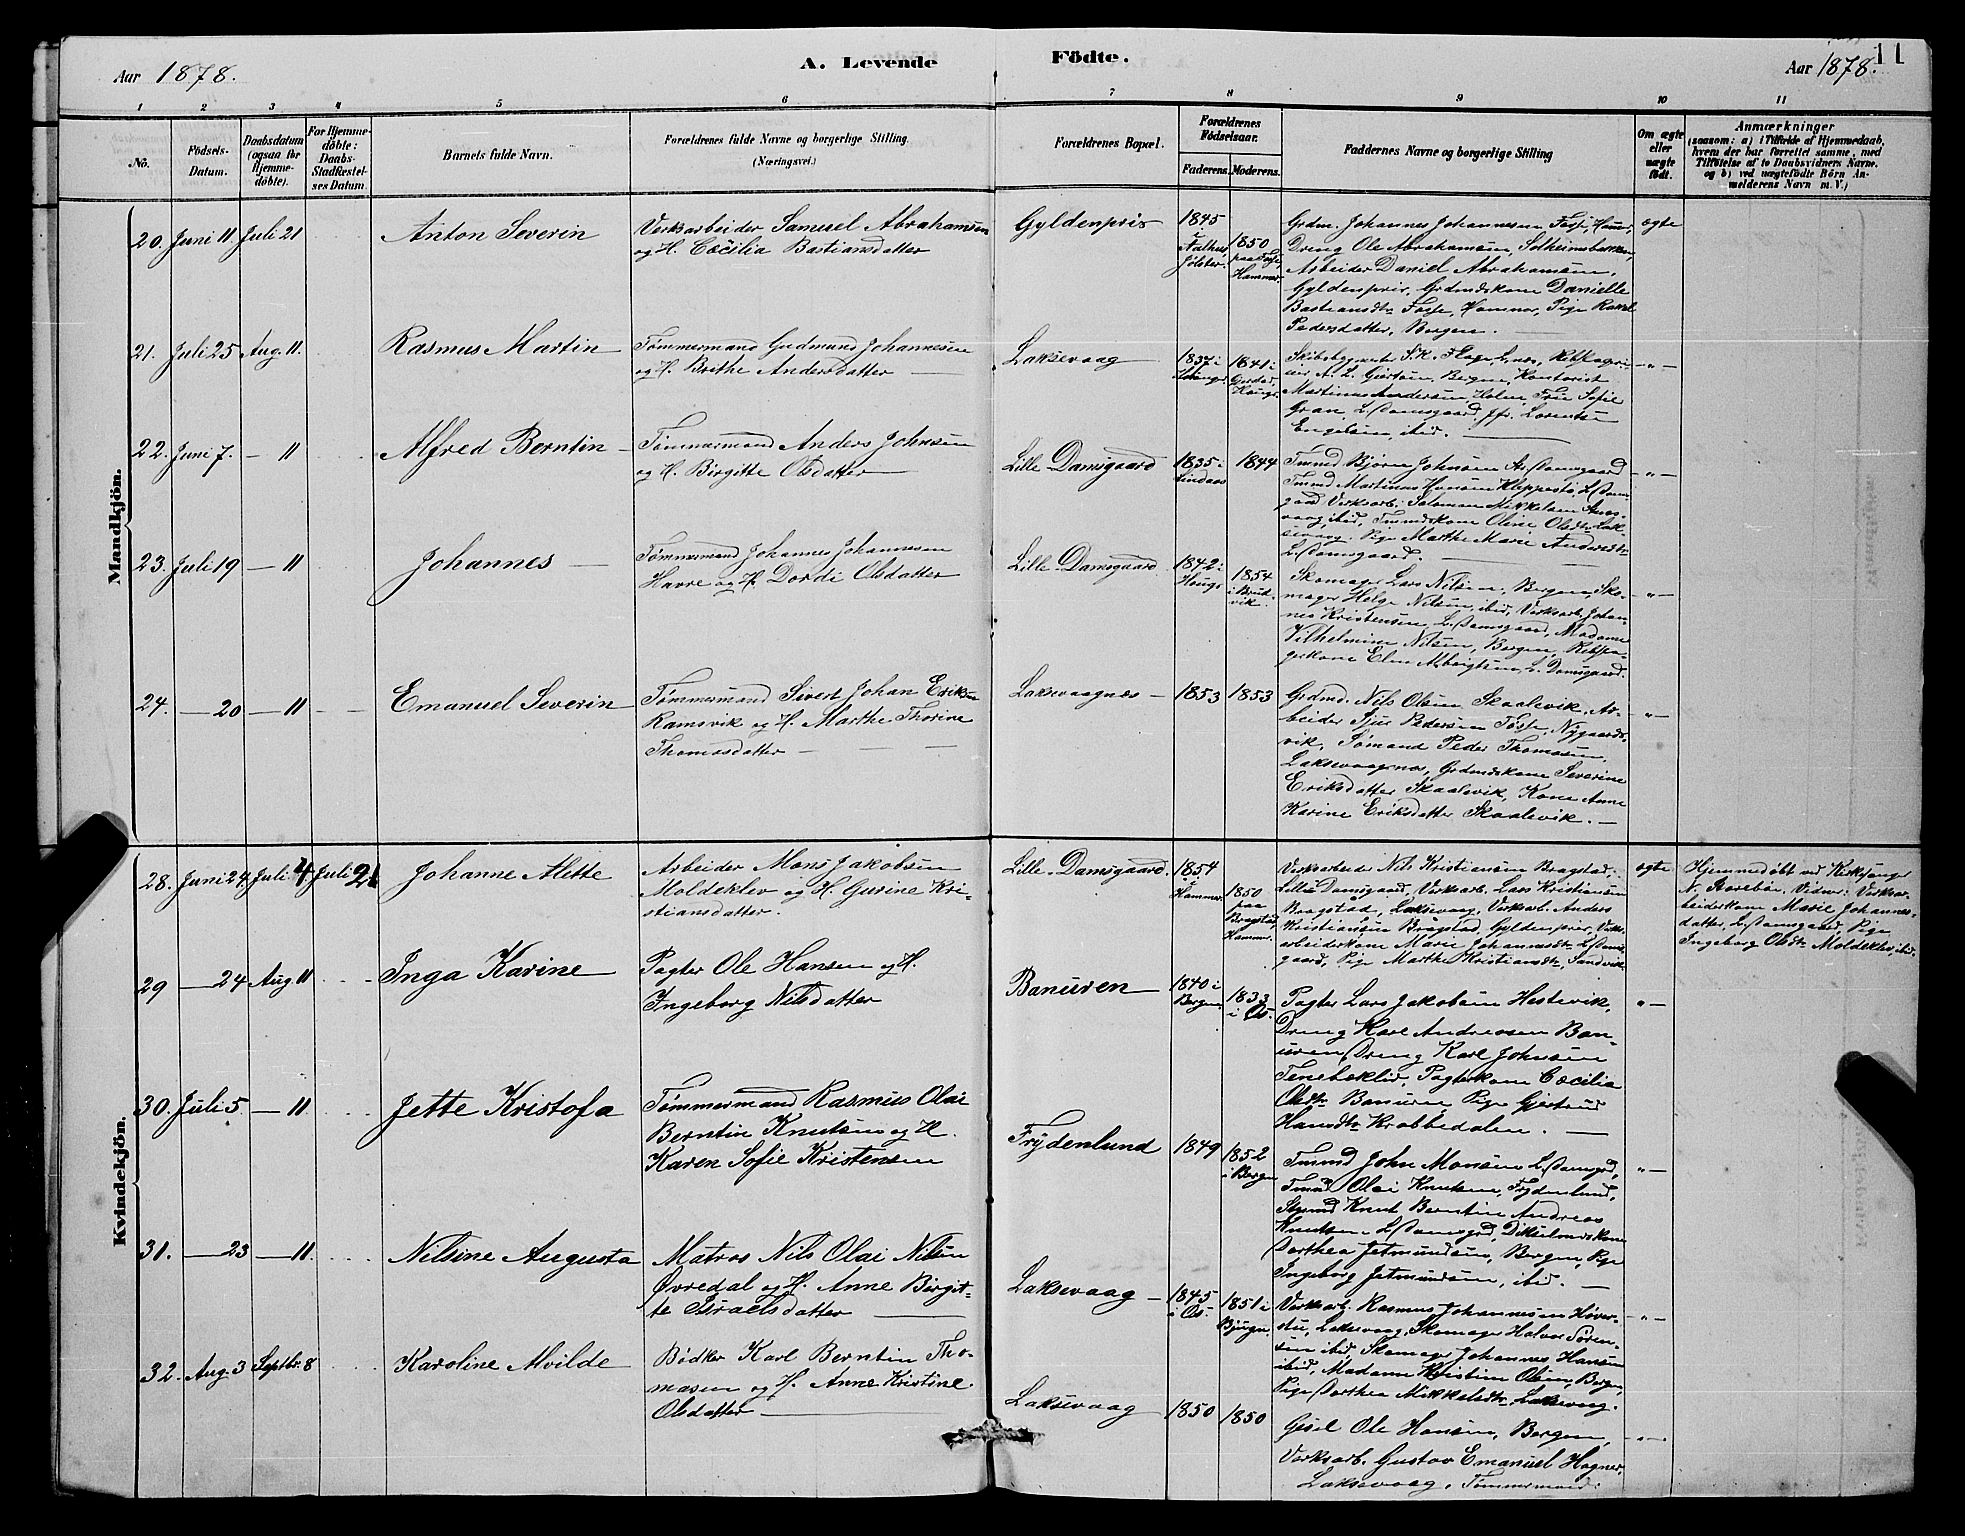 Aar 1878.
A. Levende
Födte.
11
Aar 1878.
1 2 3 4 5 6 7 8 9 10 11
No.
Födsels-
Datum.
Daabsdatum
(ogsaa for
Hjemme-
døbte).
For Hjemme-
døbte:
Daabs-
Stadfæstel-
ses Datum.
Barnets fulde Navn.
Forældrenes fulde Navne og borgerlige Stilling
(Næringsvei.)
Forældrenes Bopæl.
Forældrenes
Födselsaar.
Faderens. Moderens.
Faddernes Navne og borgerlige Stilling
Om ægte
eller
uægte
født.
Anmærkninger
(saasom: a) i Tilfælde af Hjemmedaab,
hvem der har forrettet samme, med
Tilføielse af to Daabsvidners Navne,
og b) ved uægtefödte Börn An-
melderens Navn m. V.)
Mandkjön.
20. Juni 11 Juli 21
Anton Severin
Verksarbeider Samuel Abrahamsen
og H. Cecilia Bastiansdatter
Gyldenpris
1845
i
Aalhus,
Jølster.
1850
paa Fosse,
Hammer.
Grdm. Johannes Johannesen Fosse, Hamer,
Dreng Ole Abrahamsen, Solheimsbakken,
Arbeider Daniel Abrahamsen,
Gyldenpris, Grdmdskone Danielle
Bastiansdtr Fosse, Hammer, Pige Rakel
Pedersdatter, Bergen.
ægte
21. Juli 25 Aug. 11.
Rasmus Martin
Tømmermand Gudmund Johannesen
og H. Brithe Andersdatter
Laksevaag
1837 i
1841 i
Skibsbygmst S. K.
Bergen, Kontorist
Martinus Andersen, Holm, Frue Sofie
Gran, L. Damsgaard, Jfr. Lorentse
Engelsen, ibid.
-"-
22. Juni 7. — 11
Alfred Berntin
Tømmermand Anders Johnsen
og H. Birgitte Olsdatter
Lille Damsgaard
1835 i
Lindaas
1844
Tmmd Bjørn Johnsen Damsgaard
Tmmd Martinus Hansen Kleppestø, L. Dams-
gaard Verksarb. Salomon Mikkelsen
ibid, Tmmdskone Oline Olsdtr Lak-
sevaag, Pige Marthe Marie Andersdtr
L. Damsgaard.
-"-
23. Juli 19 — 11
Johannes
Tømmermand Johannes Johannesen
Havre og H. Dordi Olsdatter
Lille Damsgaard
1842 i
Hougs
1854
i Bruk-
vik.
Skomager Lars Nilsen, Bergen, Sko-
mager Helge Nilsen, ibid, Verksarb. Johan-
nes Kristensen L. Damsgaard, Madame
Vilhelmine Nilsen, Bergen, Rebsla-
gerkone Elen Albrigtsen, L. Damsgaard.
-"-
24. — 20 — 11
Emanuel Severin
Tømmermand Sivert Johan Eriksen
Ramsvik og H. Marthe Thorine
Thomasdatter
Laksevaagnæs
1853 1853
Grdmd. Nils Olsen Skaalevik, Ar-
beider Sjur Pedersen Fosse, Nygaards-
vik, Sømand Peder Thomasen
Laksevaagnæs, Grdmdskone Severine
Eriksdatter Skaalevik, Kone Anne
Karine Eriksdatter Skaalevik.
-"-
Kvindekjön.
28. Juni 24. Juli 4 Juli 21
Johanne Alette
Arbeider Mons Jakobsen
Moldeklev og H. Gurine Kri-
stiansdatter.
Lille Damsgaard.
1854
i
Hammer.
1850
paa
Bragstad,
Hammer.
Verksarbeider Nils Kristiansen Bragstad,
Lille Damsgaard, Verksarb. Lars Kristiansen
Bragstad, Laksevaag, Verksarb. Anders
Kristiansen Bragstad, Gyldenpris, Verks-
arbeiderkone Marie Johannesdtr L. Dams-
gaard, Pige Marthe Kristiansdtr, Sandvik.
ægte
Hjemmedøbt ved Kirkesanger
N. Vidner: Verksar-
beiderkone Marie Johannes-
datter, L. Damsgaard, Pige
Ingeborg Olsdtr Moldeklev, ibid.
29 — 24 Aug. 11
Inga Karine
Pagter Ole Hansen og H.
Ingeborg Nilsdatter
Banuren
1840 i
Bergen
1833
i Os.
Pagter Lars Jakobsen Hestevik,
Dreng Karl Andreasen Ban-
uren, Dreng Karl Johnsen
Tenebeklid, Pagterkone Cecilia
Olsdtr Banuren, Pige Gjertrud
Hansdtr Krabbedalen.
"-
30. Juli 5. — 11
Jette Kristofa
Tømmermand Rasmus Olai
Berntin Knutsen og H.
Karen Sofie Kristensen
Frydenlund
1849
1852
i Bergen
Tmmd John Monsen L. Damsgrd,
Tmmd Olai Knutsen, Frydenlund,
Styrmd Knut Berntin Andreas
Knutsen L. Damsgrd,
Dorthea Jetmundsen, Bergen, Pige
Ingeborg Jetmundsen, ibid.
"-
31. — 23 — 11.
Nilsine Augusta
Matros Nils Olai Nilsen
Øvredal og H. Anne Birgit-
te Israelsdatter
Laksevaag
1845
i Os.
1851 i
Bjugn.
Verksarb. Rasmus Johannesen
Laksevaag, Skomager Halvor Søren-
sen ibid, Skomager Johannes Hansen
ibid, Madame Kristine Olsen, Bergen,
Pige Dorthea Mikkelsdtr, Laksevaag.
-"-
32. Aug. 3 Septbr. 8
Karoline Alvilde
Bødker Karl Berntin Tho-
masen og H. Anne Kristine
Olsdatter
Laksevaag
1850 1850
Gesel Ole Hansen, Bergen,
Verksarb. Gustav Emanuel Hagner,
Laksevaag, Tømmermand
-"-